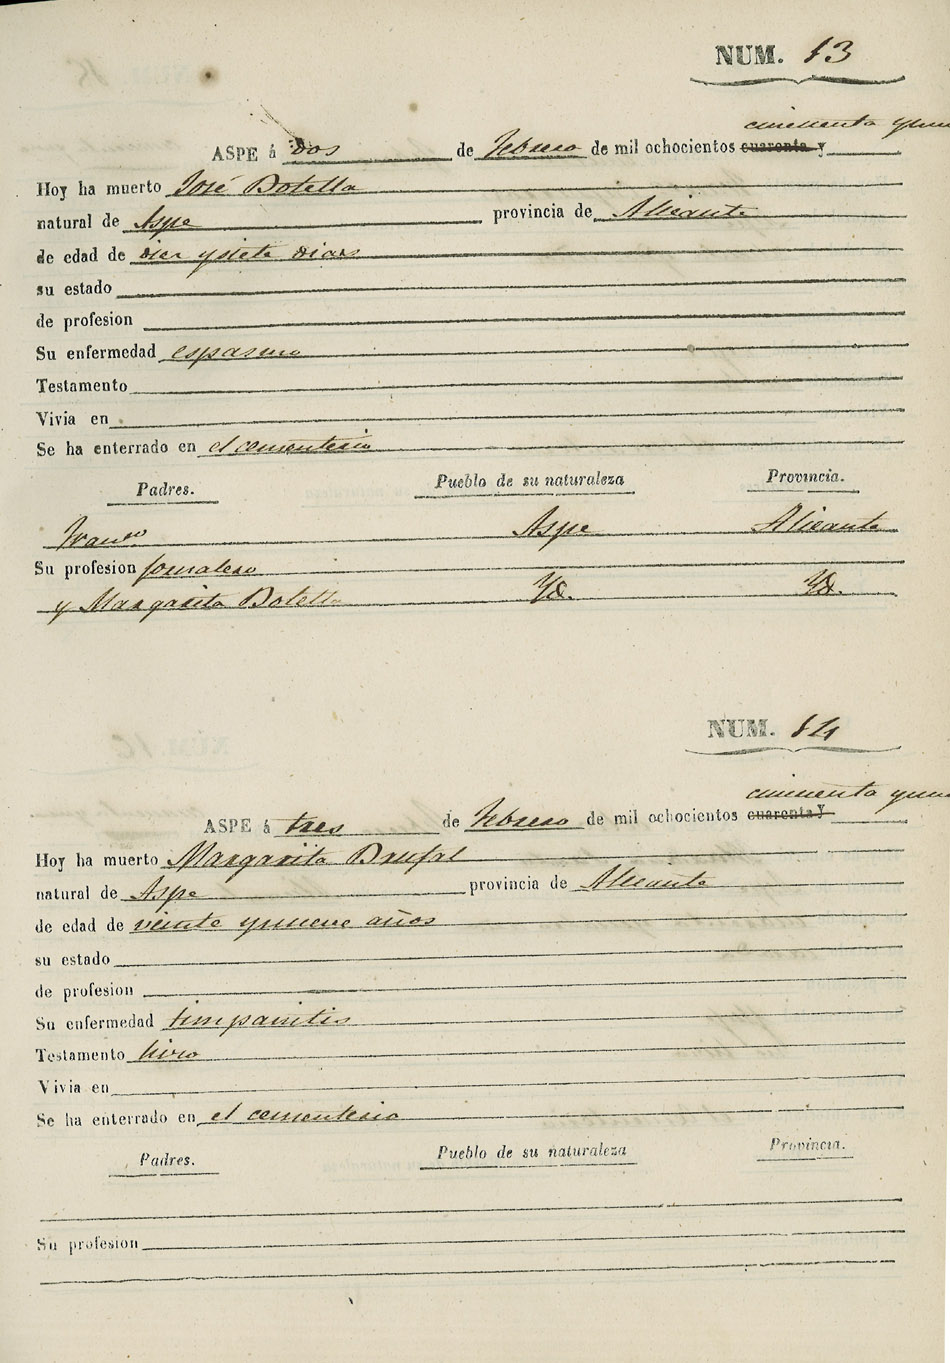 NUM. 13
cincuenta y
ASPE á dos de Febrero de mil ochocientos cuarenta y
Hoy ha muerto José Botella
natural de Aspe provincia de Alicante
de edad de diez y siete dias
su estado
de profesion
Su enfermedad espasmo
Testamento
Vivia en
Se ha enterrado en el cementerio
Padres. Pueblo de su naturaleza Provincia.
Franco Aspe Alicante
Su profesion jornalero
y Margarita Botella Yd. Yd.
NUM. 14
cincuenta y
ASPE á tres de Febrero de mil ochocientos cuarenta y
Hoy ha muerto Margarita Brufal
natural de Aspe provincia de Alicante
de edad de veinte y nueve años
su estado
de profesion
Su enfermedad timpanitis
Testamento hizo
Vivia en
Se ha enterrado en el cementerio
Padres. Pueblo de su naturaleza Provincia.
Su profesion